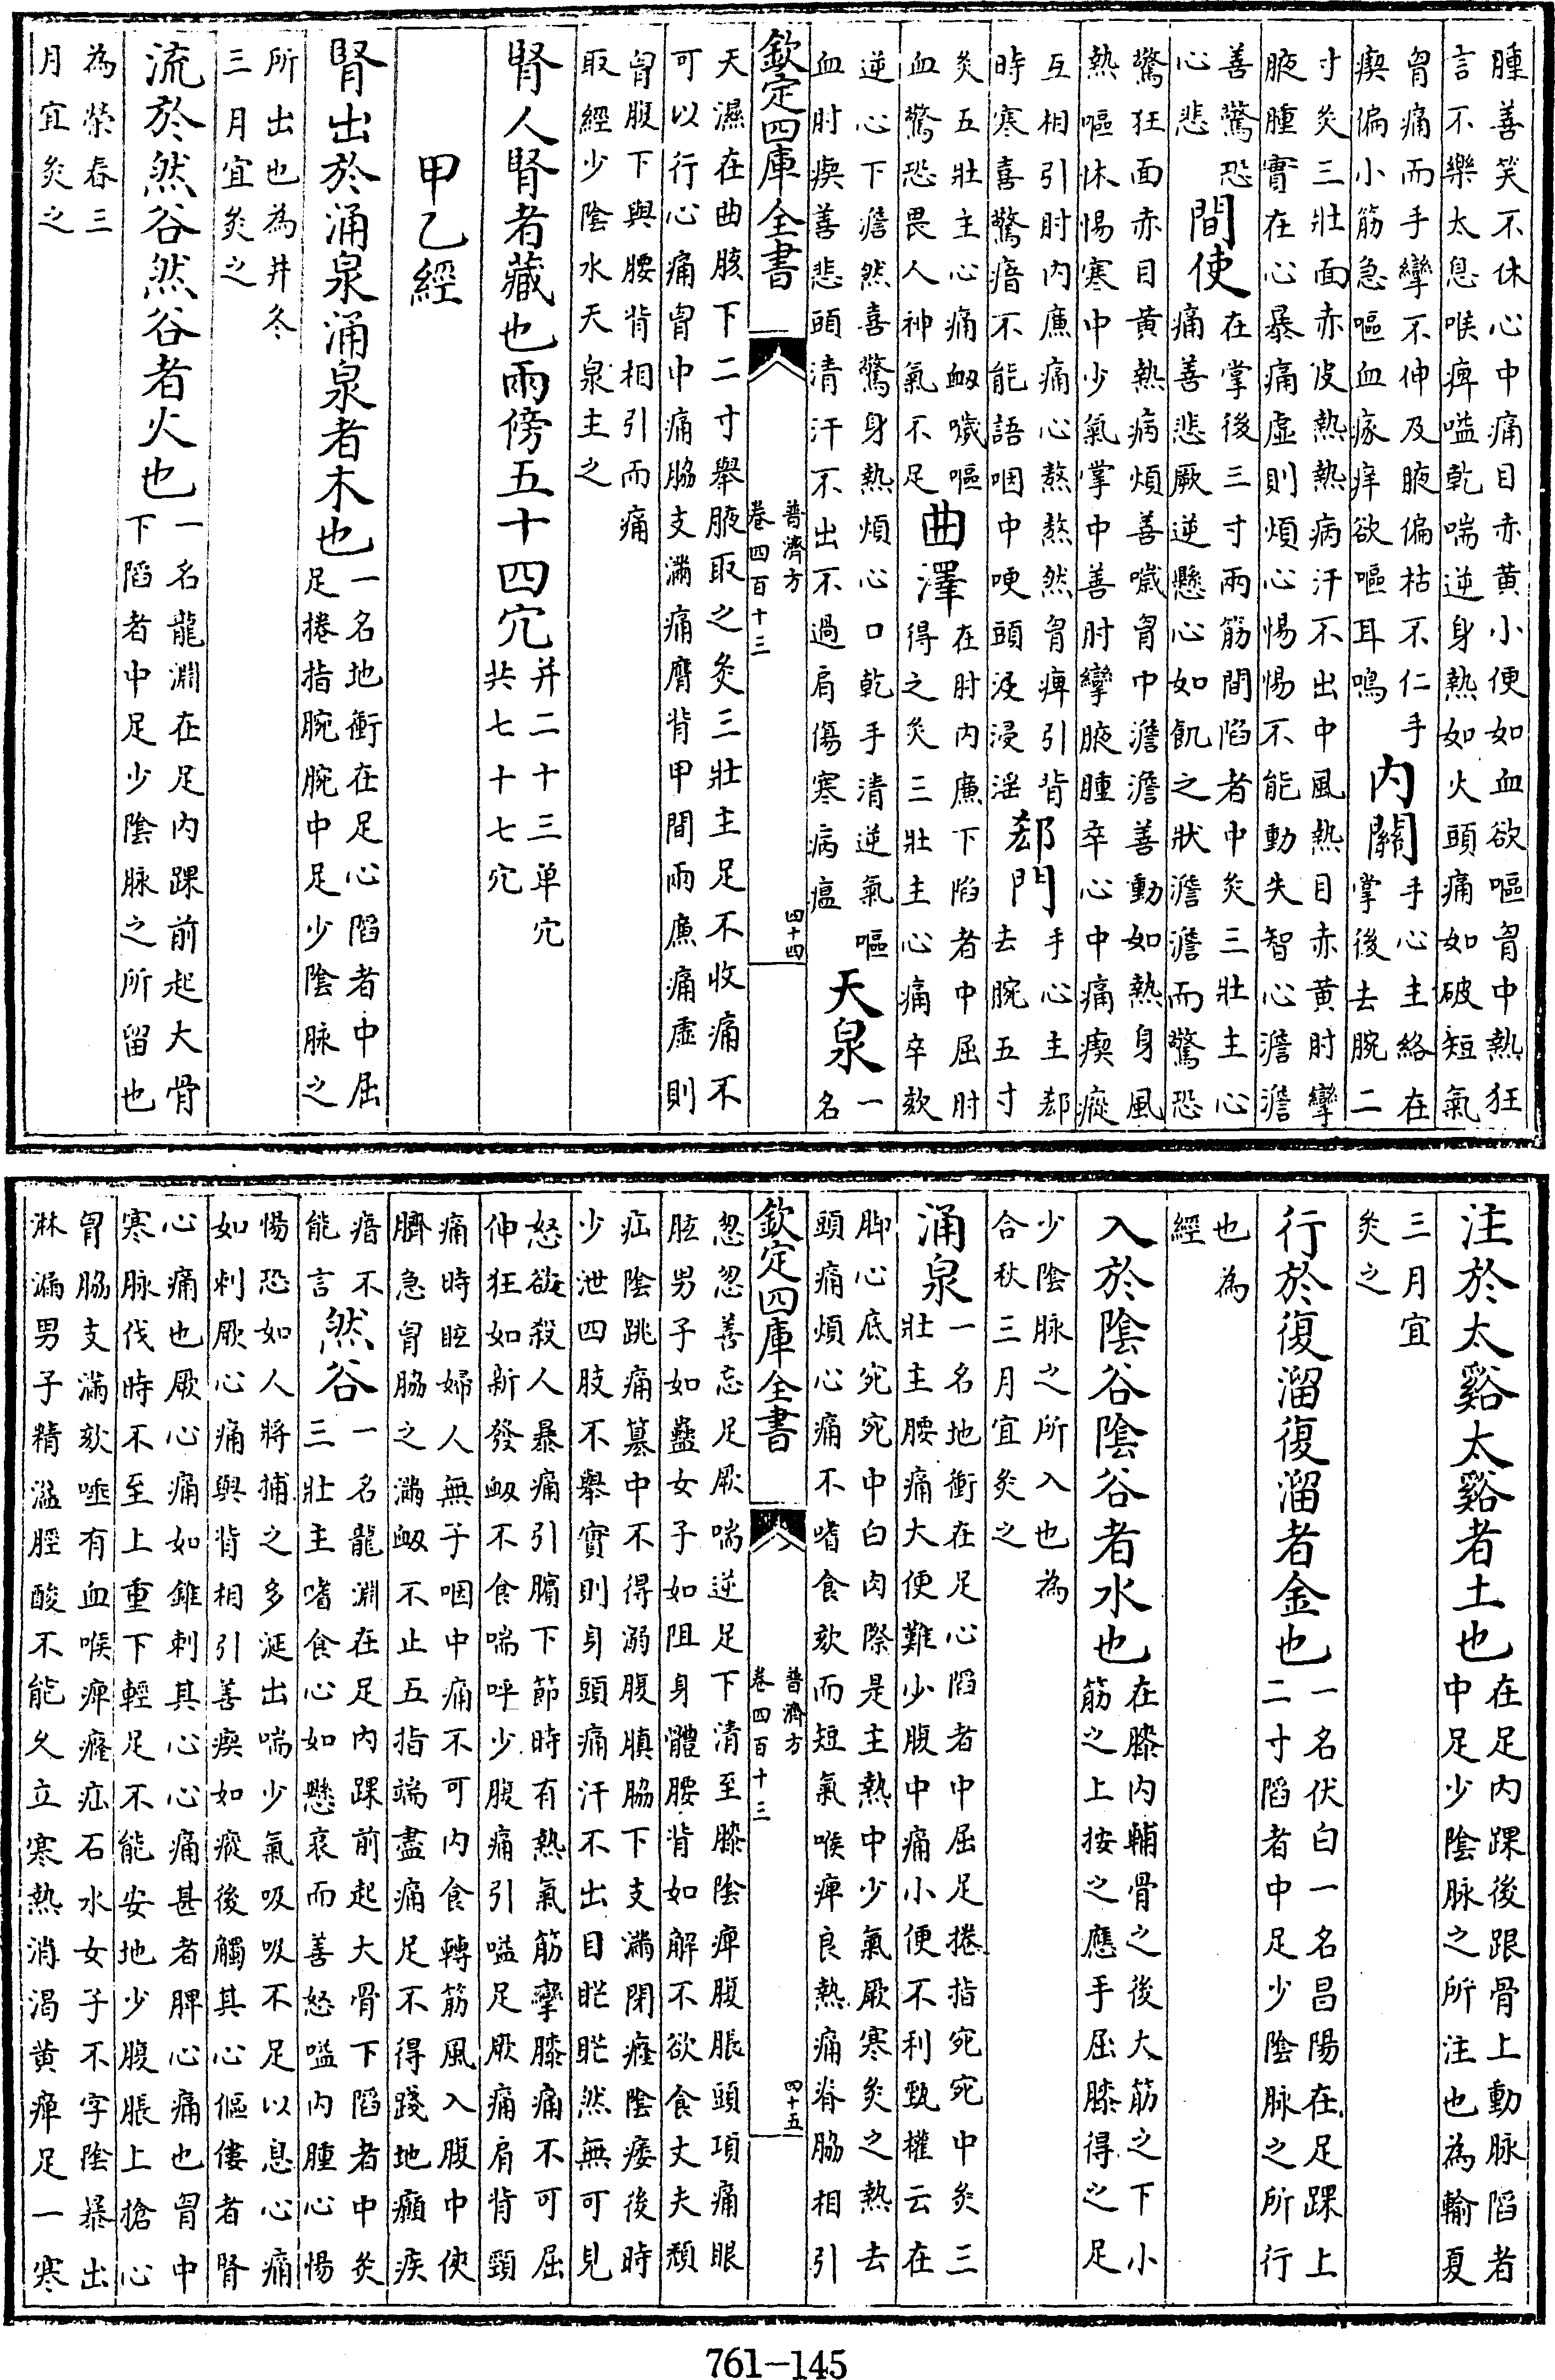 腫善笑不休心中痛目赤黄小便如血欲嘔胷中熱狂
言不樂太息喉痺嗌乾喘逆身熱如火頭痛如破短氣
胷痛而手攣不伸及腋偏枯不仁手
瘈偏小筋急嘔血瘃痒欲嘔耳鳴
内關
手心主絡在
掌後去腕二
寸灸三壯面赤皮熱熱病汗不出中風熱目赤黄肘攣
腋腫實在心暴痛虚則煩心惕惕不能動失智心澹澹
善驚恐
心悲
間使
在掌後三寸兩筋間陷者中灸三壯主心
痛善悲厥逆懸心如飢之狀澹澹而驚恐
驚狂面赤目黄熱病煩善噦胷中澹澹善動如熱身風
熱嘔怵惕寒中少氣掌中善肘攣腋腫卒心中痛瘈瘲
互相引肘内廉痛心熬熬然胷痺引背
時寒喜驚瘖不能語咽中哽頭浸浸淫
郄門
手心主郄
去腕五寸
灸五壯主心痛衂噦嘔
血驚恐畏人神氣不足
曲澤
在肘内廉下陷者中屈肘
得之灸三壯主心痛卒欬
逆心下澹然喜驚身熱煩心口乾手清逆氣嘔
血肘瘈善悲頭清汗不出不過肩傷寒病瘟
天泉
一
名
欽定四庫全書
普濟方
卷四百十三
四十四
天濕在曲腋下二寸舉腋取之灸三壯主足不收痛不
可以行心痛胷中痛脇支滿痛膺背甲間兩廉痛虚則
胷腹下與腰背相引而痛
取經少陰水天泉主之
腎人腎者藏也兩傍五十四穴
并二十三單穴
共七十七穴
甲乙經
腎出於涌泉涌泉者木也
一名地衝在足心陷者中屈
足捲指腕腕中足少陰脉之
所出也為井冬
三月宜灸之
流於然谷然谷者火也
一名龍淵在足内踝前起大骨
下陷者中足少陰脉之所留也
為滎春三
月宜灸之
注於太谿太谿者土也
在足内踝後跟骨上動脉陷者
中足少陰脉之所注也為輸夏
三月宜
灸之
行於復溜復溜者金也
一名伏白一名昌陽在足踝上
二寸陷者中足少陰脉之所行
也為
經
入於陰谷陰谷者水也
在膝内輔骨之後大筋之下小
筋之上按之應手屈膝得之足
少陰脉之所入也為
合秋三月宜灸之
涌泉
一名地衝在足心陷者中屈足捲指宛宛中灸三
壯主腰痛大便難少腹中痛小便不利甄權云在
脚心底宛宛中白肉際是主熱中少氣厥寒灸之熱去
頭痛煩心心痛不嗜食欬而短氣喉痺良熱痛脊脇相引
欽定四庫全書
普濟方
卷四百十三
四十五
忽忽善忘足厥喘逆足下清至膝陰痺腹脹頭項痛眼
眩男子如蠱女子如阻身體腰背如解不欲食丈夫㿗
疝陰跳痛篡中不得溺腹䐜脇下支滿閉癃陰痿後時
少泄四肢不舉實則身頭痛汗不出目䀮䀮然無可見
怒欲殺人暴痛引臏下節時有熱氣筋攣膝痛不可屈
伸狂如新發衂不食喘呼少腹痛引嗌足厥痛肩背頸
痛時眩婦人無子咽中痛不可内食轉筋風入腹中使
臍急胷脇之滿衂不止五指端盡痛足不得踐地癲疾
瘖不
能言
然谷
一名龍淵在足内踝前起大骨下陷者中灸
三壯主嗜食心如懸哀而善怒嗌内腫心惕
惕恐如人將捕之多涎出喘少氣吸吸不足以息心痛
如刺厥心痛與背相引善瘈如瘲後觸其心傴僂者腎
心痛也厥心痛如錐刺其心心痛甚者脾心痛也胷中
寒脉伐時不至上重下輕足不能安地少腹脹上搶心
胷脇支滿欬唾有血喉痺癃疝石水女子不字陰暴出
淋漏男子精溢脛酸不能久立寒熱消渴黄痺足一寒
761-145